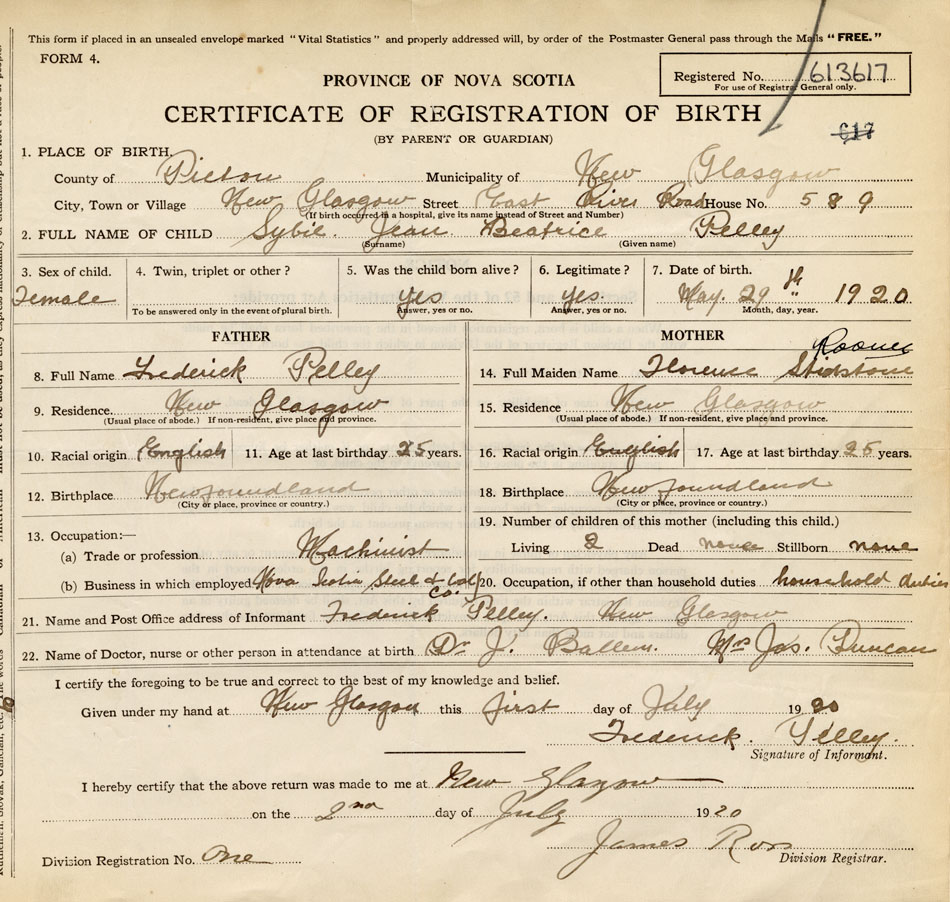 This form if placed in an unsealed envelope marked "Vital Statistics" and properly addressed will, by order of the Postmaster General pass through the Mails "FREE."
FORM 4.
Registered No. 613617
For use of Registrar General only.
PROVINCE OF NOVA SCOTIA
CERTIFICATE OF REGISTRATION OF BIRTH
(BY PARENT OR GUARDIAN)
617
1. PLACE OF BIRTH.
County of Pictou Municipality of New Glasgow
City, Town or Village New Glasgow Street East River Road House No. 589
(If birth occurred in a hospital, give its name instead of Street and Number)
2. FULL NAME OF CHILD Sybil Jean Beatrice Pelley
(Surname) (Given name)
3. Sex of child. Female
4. Twin, triplet or other?
To be answered only in the event of plural birth.
5. Was the child born alive? yes
Answer, yes or no.
6. Legitimate? yes.
Answer, yes or no.
7. Date of birth. May. 29th 1920
Month, day, year.
FATHER
8. Full Name Frederick Pelley
9. Residence. New Glasgow
(Usual place of abode.) If non-resident, give place and province.
10. Racial origin English 11. Age at last birthday 25 years.
12. Birthplace Newfoundland
(City or place, province or country.)
13. Occupation:—
(a) Trade or profession Machinist
(b) Business in which employed Nova Scotia Steel & Coal Co.
MOTHER
14. Full Maiden Name Florence Stidstone
15. Residence New Glasgow
(Usual place of abode.) If non-resident, give place and province.
16. Racial origin English 17. Age at last birthday 25 years.
18. Birthplace Newfoundland
(City or place, province or country.)
19. Number of children of this mother (including this child.)
Living 2 Dead none Stillborn none
20. Occupation, if other than household duties household duties
21. Name and Post Office address of Informant Frederick Pelley. New Glasgow
22. Name of Doctor, nurse or other person in attendance at birth Dr J. Ballem. Mrs Jas. Duncan
I certify the foregoing to be true and correct to the best of my knowledge and belief.
Given under my hand at New Glasgow this first day of July 1920
Frederick. Pelley.
Signature of Informant.
I hereby certify that the above return was made to me at New Glasgow
on the 2nd day of July 1920
James Ross
Division Registrar.
Division Registration No. One